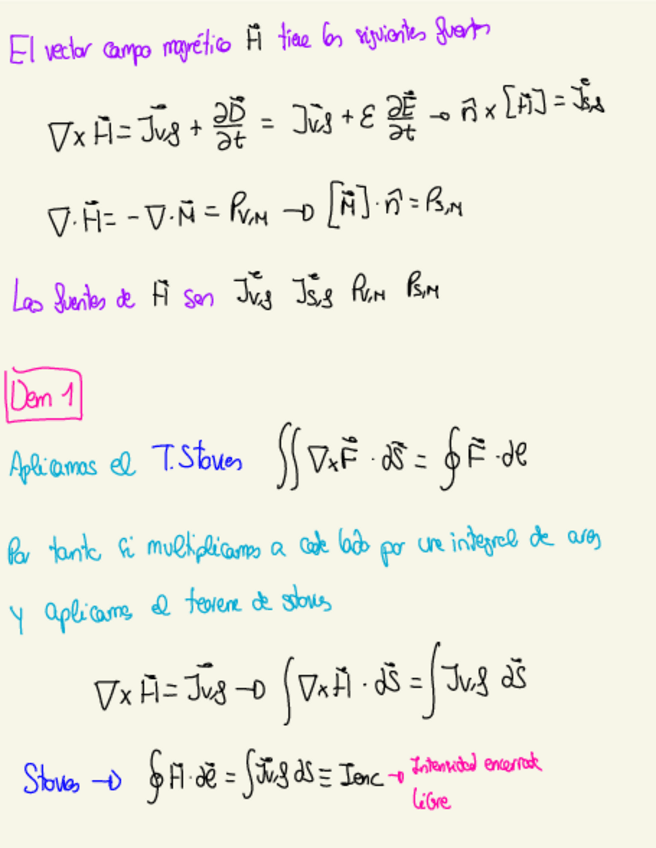 El vector campo magnético H⃗ tiene las siguientes fuentes
∇×H⃗ = J⃗v,f + ∂D⃗/∂t = J⃗v,f + ε ∂E⃗/∂t → n̂ × [H⃗] = J⃗s,f
∇·H⃗ = -∇·M⃗ = ρv,M → [M⃗]·n̂ = ρs,M
Las fuentes de H⃗ son J⃗v,f J⃗s,f ρv,M ρs,M
Dem 1
Aplicamos el T.Stokes ∬ ∇×F⃗ · dS⃗ = ∮ F⃗ · dl
Por tanto si multiplicamos a cada lado por una integral de area
y aplicamos el teorema de stokes
∇×H⃗ = J⃗v,f → ∫ ∇×H⃗ · dS⃗ = ∫ Jv,f dS⃗
Stokes → ∮ H⃗ · dl⃗ = ∫ J⃗v,f dS ≡ Ienc → Intensidad encerrada
libre